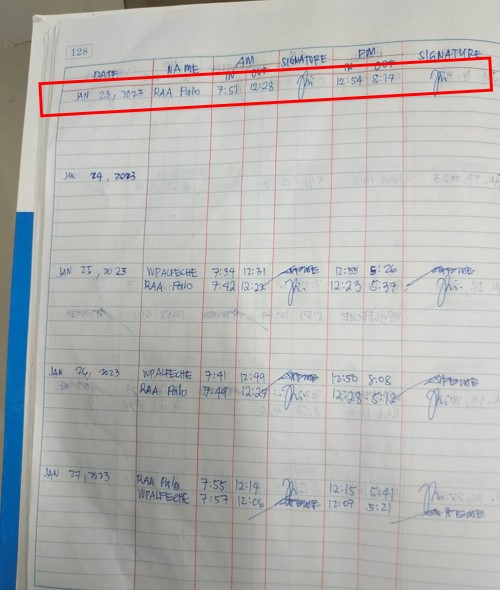 128
DATE NAME AM IN OUT SIGNATURE PM IN OUT SIGNATURE
JAN 23, 2023 RAA Palo 7:51 12:28 12:54 8:17
JAN 24, 2023
JAN 25, 2023 WPALFECHE 7:39 12:31 12:55 5:26
RAA Palo 7:42 12:22 12:23 5:37
JAN 26, 2023 WPALFECHE 7:41 12:49 12:50 8:08
RAA Palo 7:49 12:27 12:28 5:12
JAN 27, 2023 RAA Palo 7:55 12:14 12:15 5:41
WPALFECHE 7:57 12:06 12:07 5:21